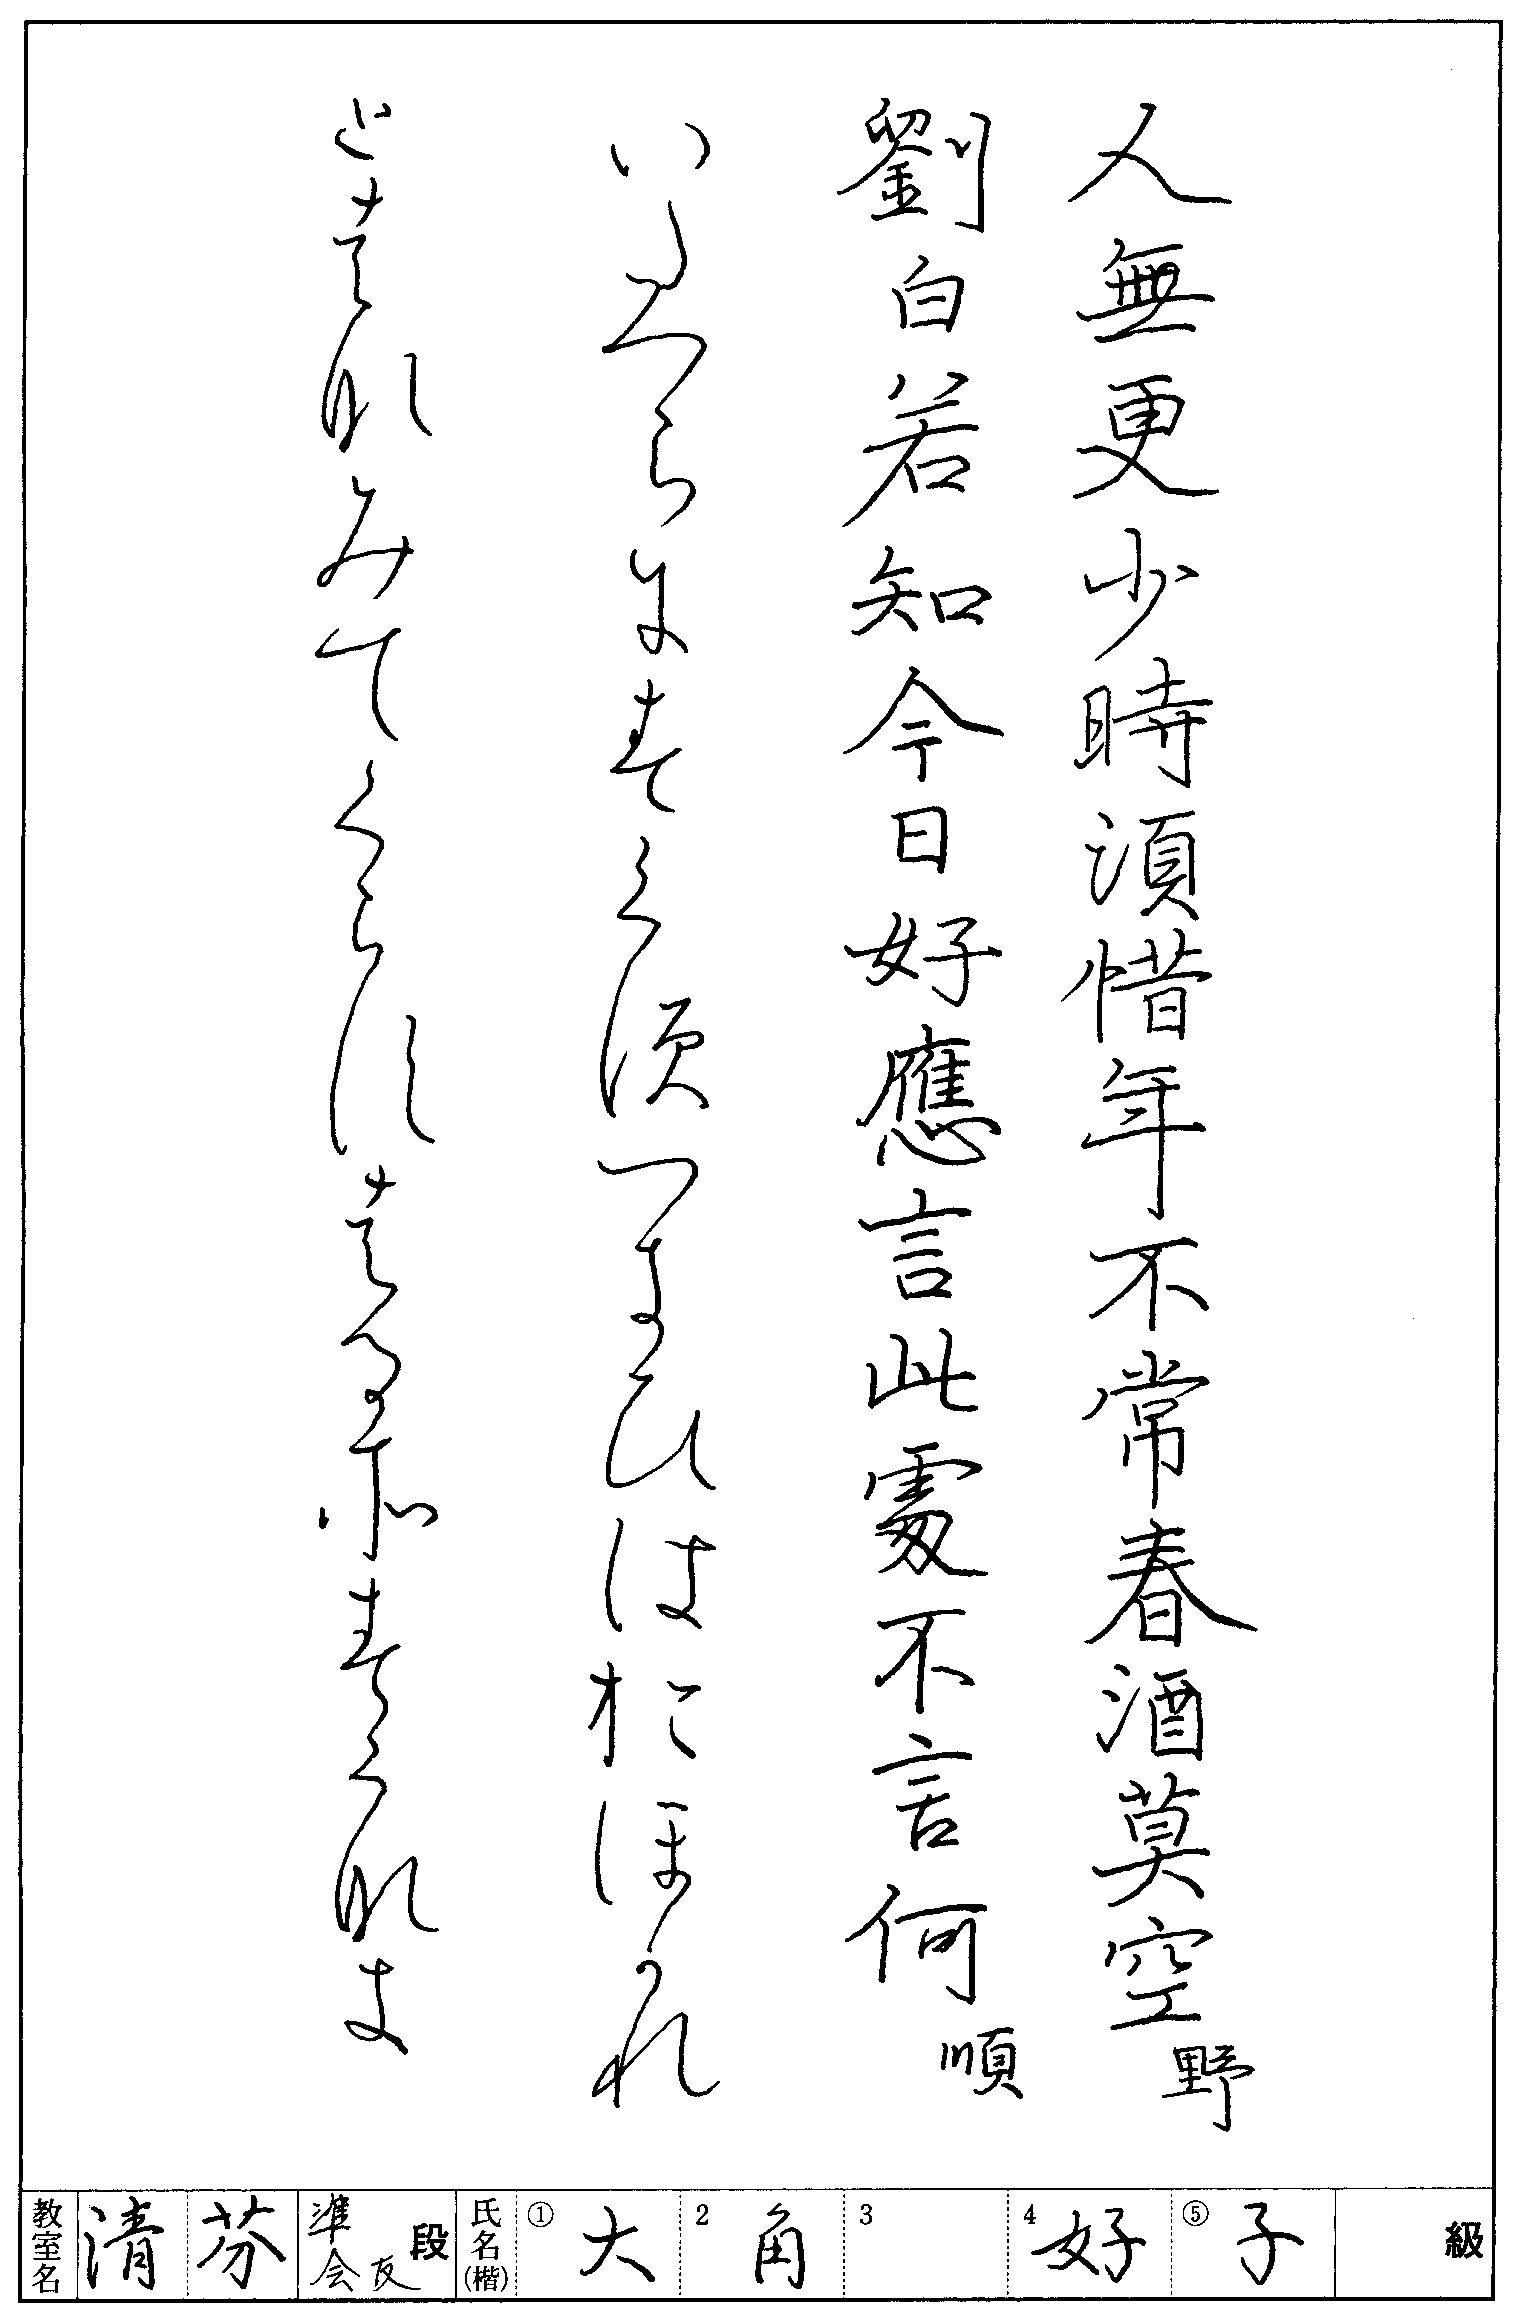 人無更少時須惜年不常春酒莫空 野
劉白若知今日好應言此處不言何 順
いたつらにすくすつきひはおほかれ
とはなみてくらすはるそすくなき
教室名 清芬 準会友 段 氏名(楷) ① 大 2 角 3 4 好 ⑤ 子 級